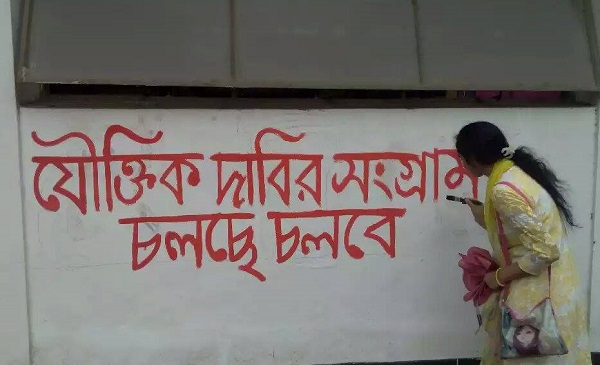 যৌক্তিক দাবির সংগ্রাম
চলছে চলবে